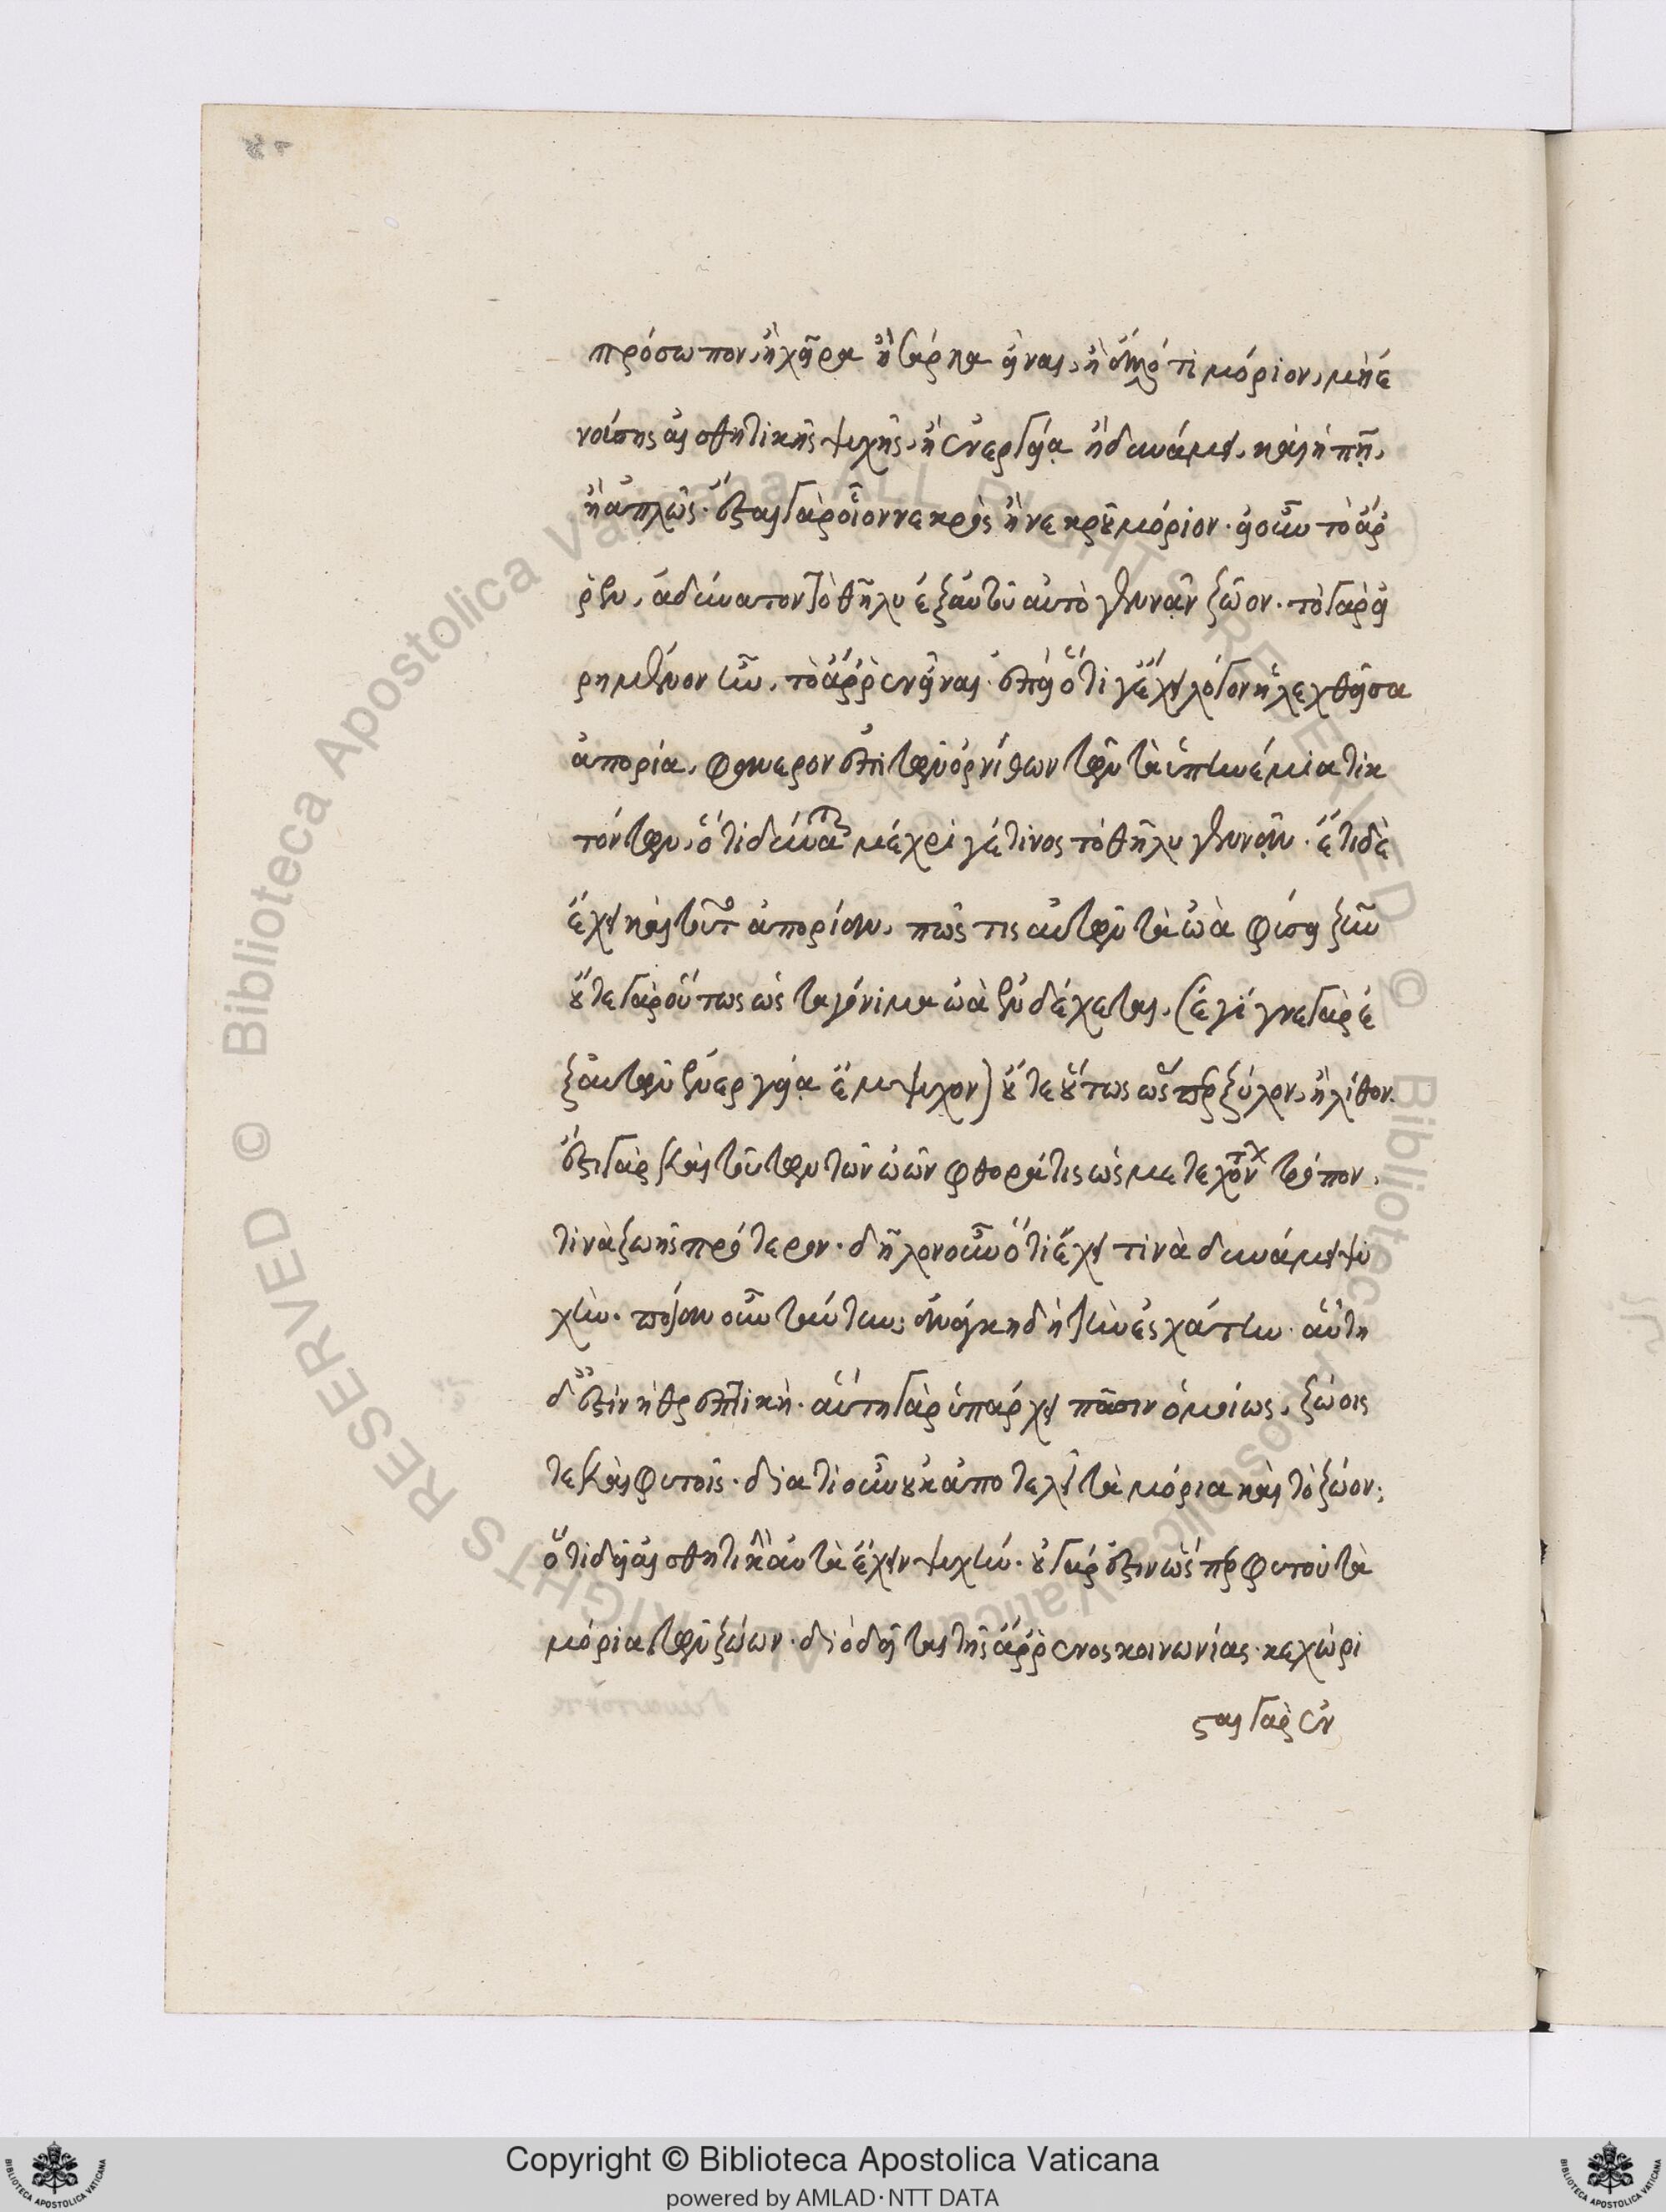 πρόσωπον, ἢ χεῖρα ἢ σάρκα εἶναι, ἢ ἄλλό τι μόριον, μὴ ἐ
νούσης αἰσθητικῆς ψυχῆς, ἢ ἐνεργείᾳ ἢ δυνάμει, καὶ ἢ πῇ,
ἢ ἁπλῶς. ἔσται γὰρ οἷον νεκρὸς ἢ νεκροῦ μόριον. εἰ οὖν τὸ ἄρ
ρεν, ἀδύνατον τὸ θῆλυ ἐξ αὑτοῦ αὐτὸ γεννᾷν ζῶον. τὸ γὰρ εἰ
ρημένον ἦν, τὸ ἄρρεν εἶναι. ἐπεὶ ὅτι γ' ἔχει λόγον ἡ λεχθεῖσα
ἀπορία, φανερον ἐπὶ τῶν ὀρνίθων τῶν τὰ ὑπηνέμια τικ
τόντων, ὅτι δύναται μέχρι γέ τινος τὸ θῆλυ γεννᾷν. ἔτι δὲ
ἔχει καὶ τοῦτο ἀπορίαν, πῶς τις αὐτῶν τὰ ὠὰ φύσει ζῆν
οὔτε γὰρ οὕτως ὡς τα γόνιμα ὠὰ ἐνδέχεται, (ἐγίγνετο γὰρ ἐ
ξ αὐτῶν ἐνεργείᾳ ἔμψυχον) οὔτε οὕτως ὥσπερ ξύλον, ἢ λίθον.
ἔστι γὰρ καὶ τούτων τῶν ὠῶν φθορά τις ὡς μετεχόντων τρόπον
τινὰ ζωῆς πρότερον. δῆλον οὖν ὅτι ἔχει τινὰ δυνάμει ψυ
χήν. ποίαν οὖν ταύτην; ἀνάγκη δὴ τὴν ἐσχάτην. αὕτη
δ' ἐστὶν ἡ θρεπτικὴ. αὕτη γὰρ ὑπάρχει πᾶσιν ὁμοίως, ζώοις
τε καὶ φυτοῖς. διατί οὖν οὐκ ἀποτελεῖ τὰ μόρια καὶ τὸ ζῶον;
ὅτι δεῖ αἰσθητικὴν αὐτὰ ἔχειν ψυχήν. οὐ γάρ ἐστιν ὥσπερ φυτοῦ τὰ
μόρια τῶν ζώων. διὸ δεῖται τῆς ἄρρενος κοινωνίας. κεχώρι
σται γὰρ ἐν
Copyright © Biblioteca Apostolica Vaticana
powered by AMLAD·NTT DATA